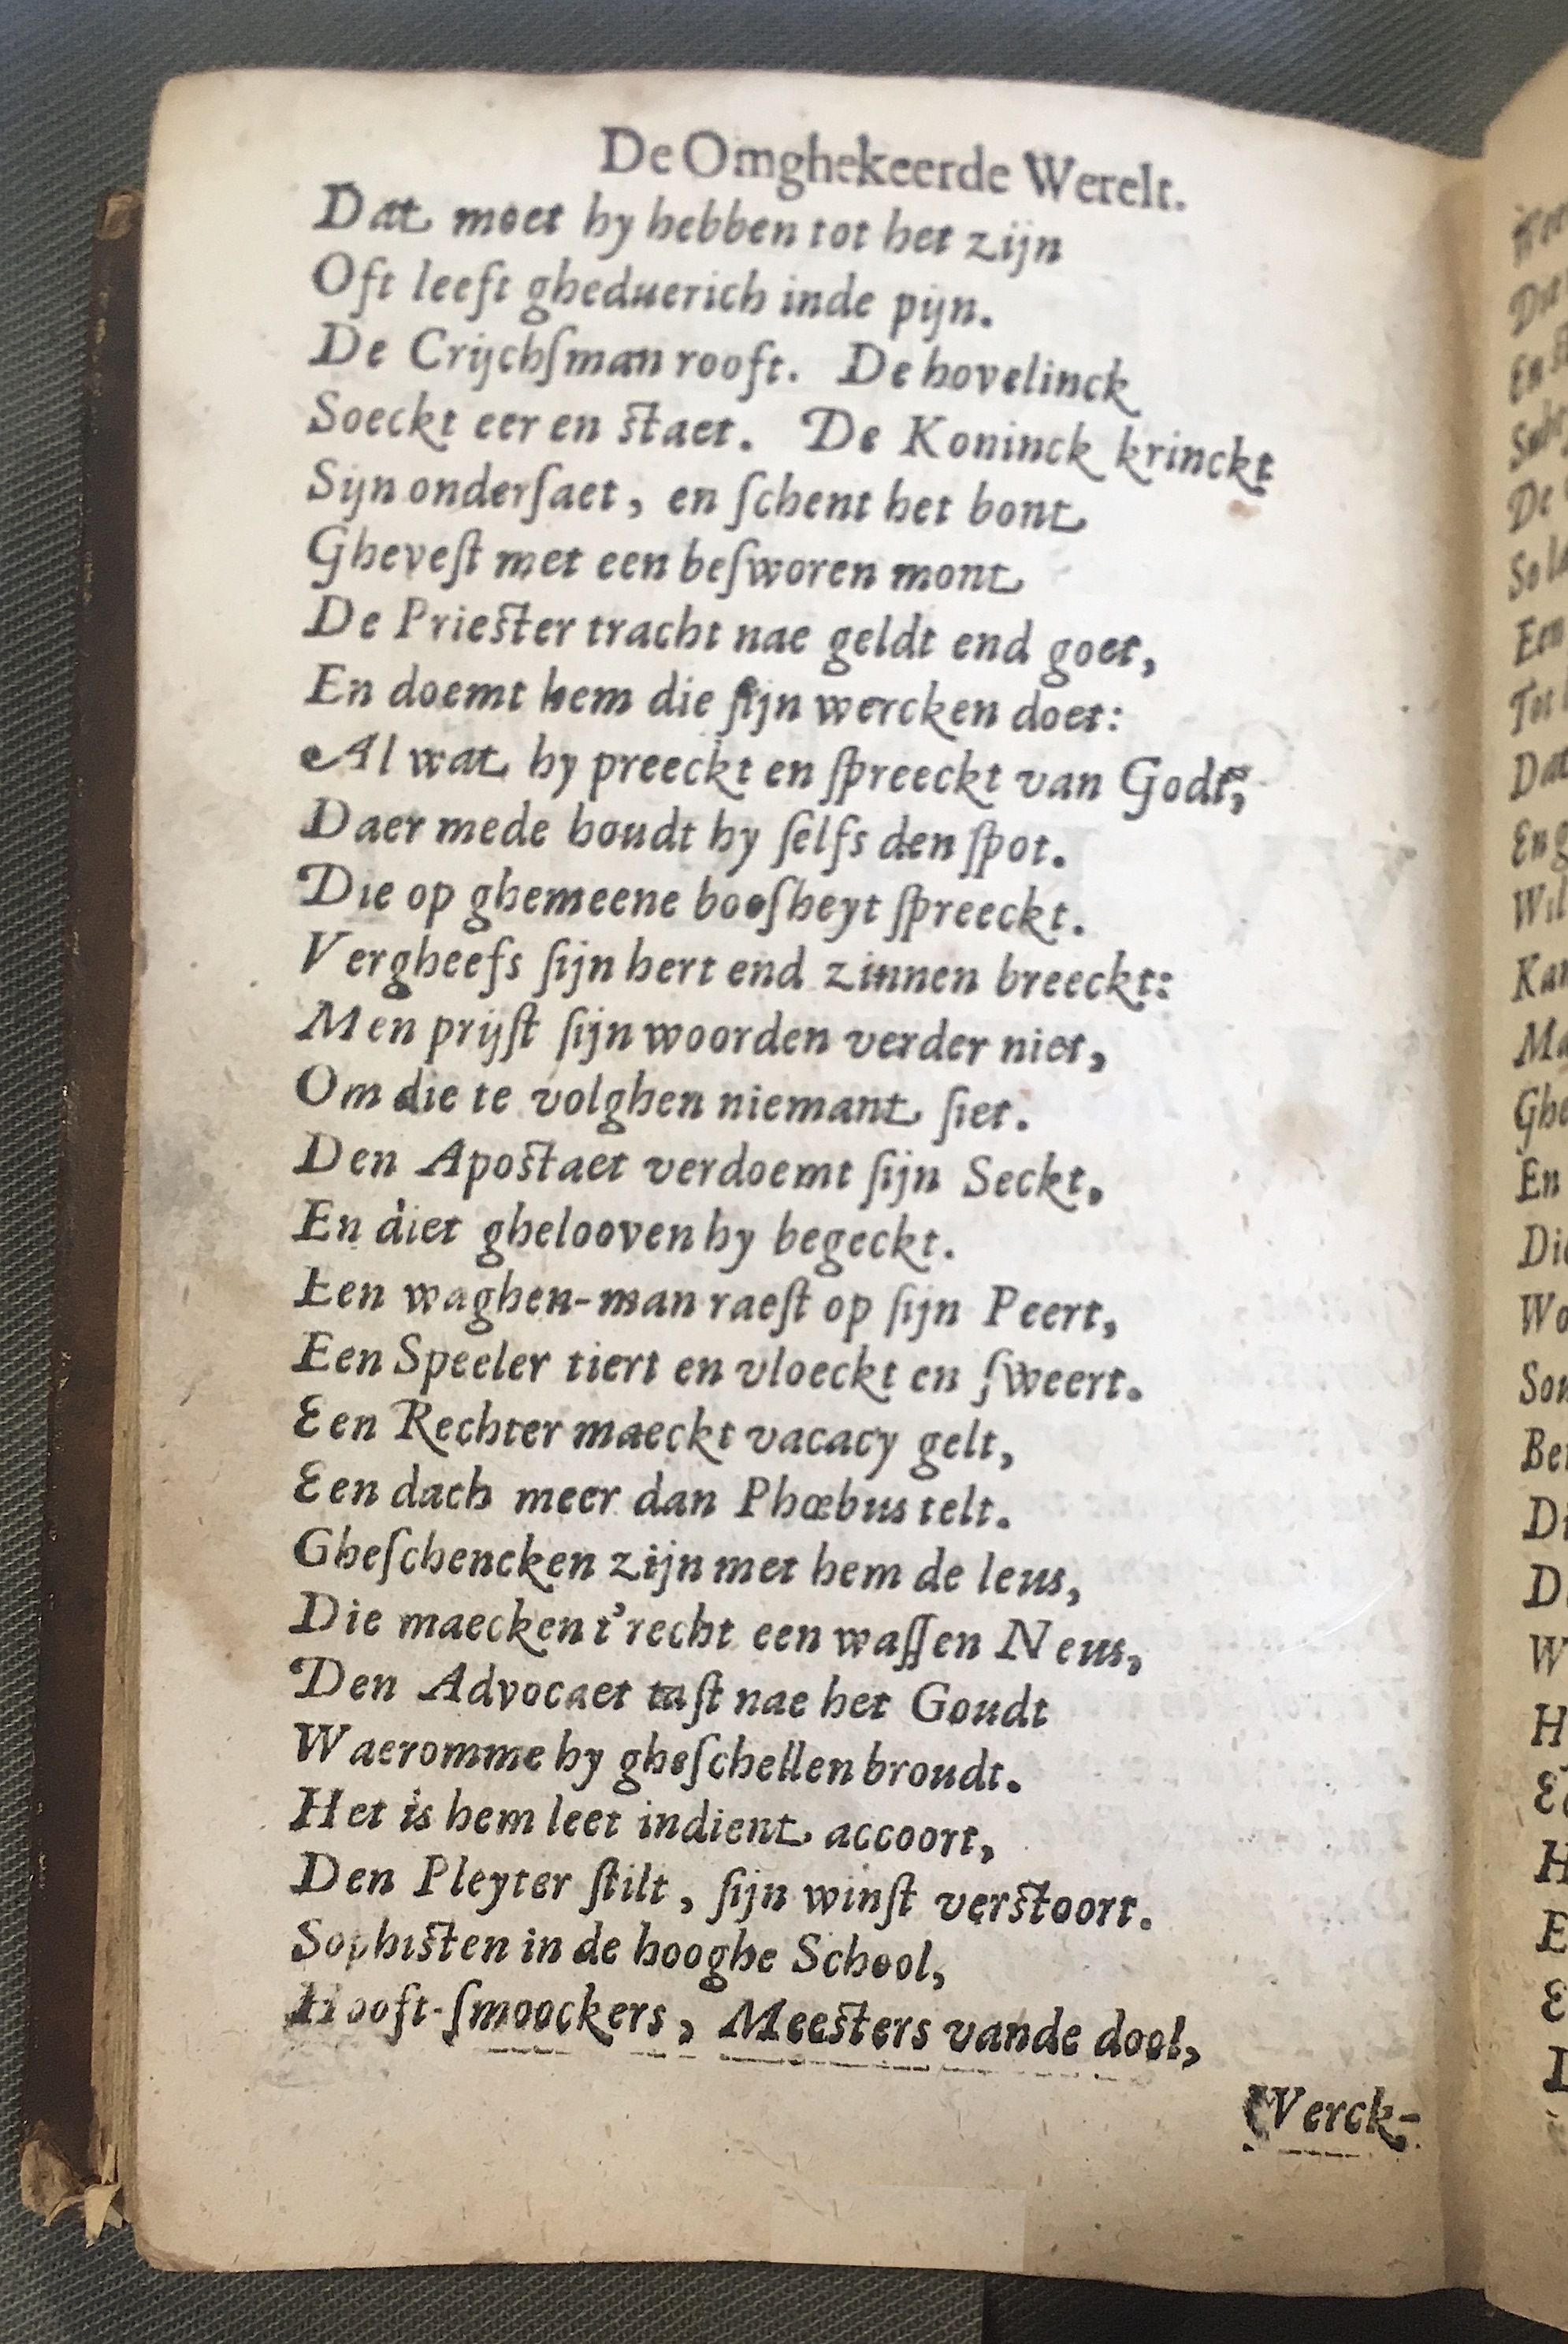 De Omghekeerde Werelt.
Dat moet hy hebben tot het zijn
Oft leeft gheduerich inde pijn.
De Crijchſman rooft. De hovelinck
Soeckt eer en staet. De Koninck krinckt
Sijn onderſaet, en ſchent het bont
Gheveſt met een beſworen mont
De Priester tracht nae geldt end goet,
En doemt hem die ſijn wercken doet:
Al wat hy preeckt en ſpreeckt van Godt,
Daer mede houdt hy ſelfs den ſpot.
Die op ghemeene booſheyt ſpreeckt.
Vergheefs ſijn hert end zinnen breeckt:
Men prijſt ſijn woorden verder niet,
Om die te volghen niemant ſiet.
Den Apostaet verdoemt ſijn Seckt,
En diet ghelooven hy begeckt.
Een waghen-man raeſt op ſijn Peert,
Een Speeler tiert en vloeckt en ſweert.
Een Rechter maeckt vacacy gelt,
Een dach meer dan Phœbus telt.
Gheſchencken zijn met hem de leus,
Die maecken t'recht een waſſen Neus,
Den Advocaet taſt nae het Goudt
Waeromme hy gheſchellen broudt.
Het is hem leet indient accoort,
Den Pleyter ſtilt, ſijn winſt verstoort.
Sophisten in de hooghe School,
Hooft-ſmoockers, Meesters vande dool,
Werck-